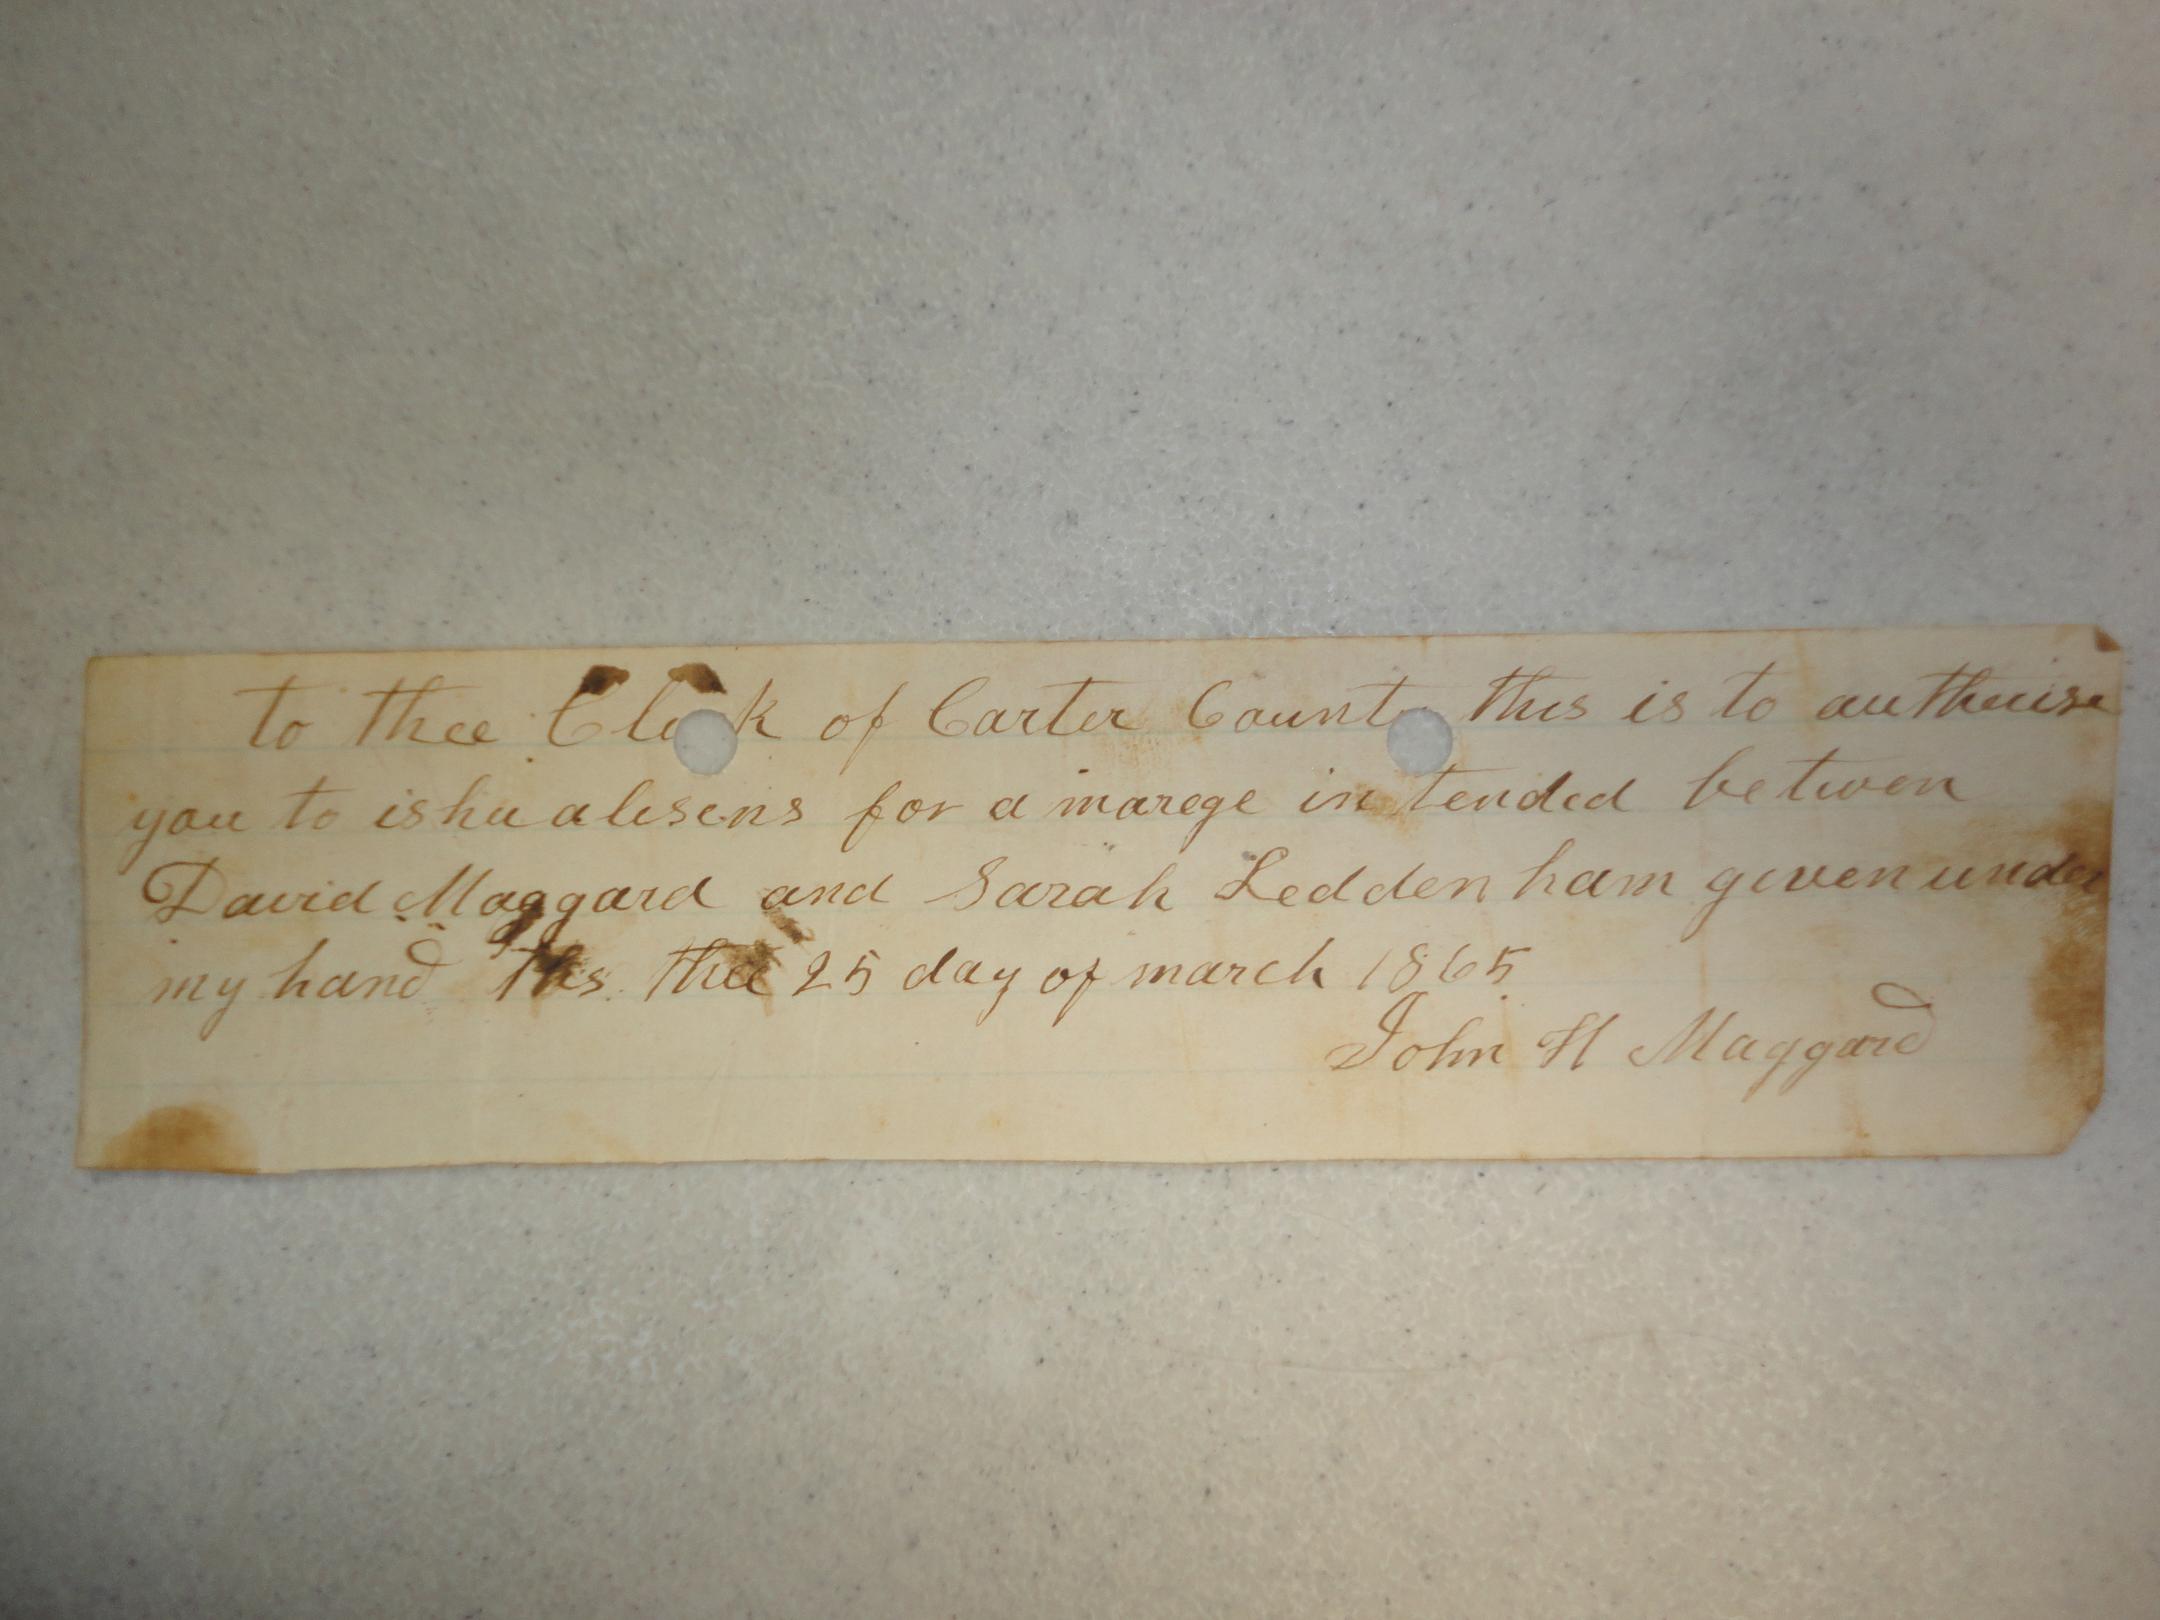 to thee Clak of Carter County this is to autheuise
you to ishu alisens for a marege in tended betwen
David Maggard and Sarah Leddenham given under
my hand this thee 25 day of march 1865
John H Maggard